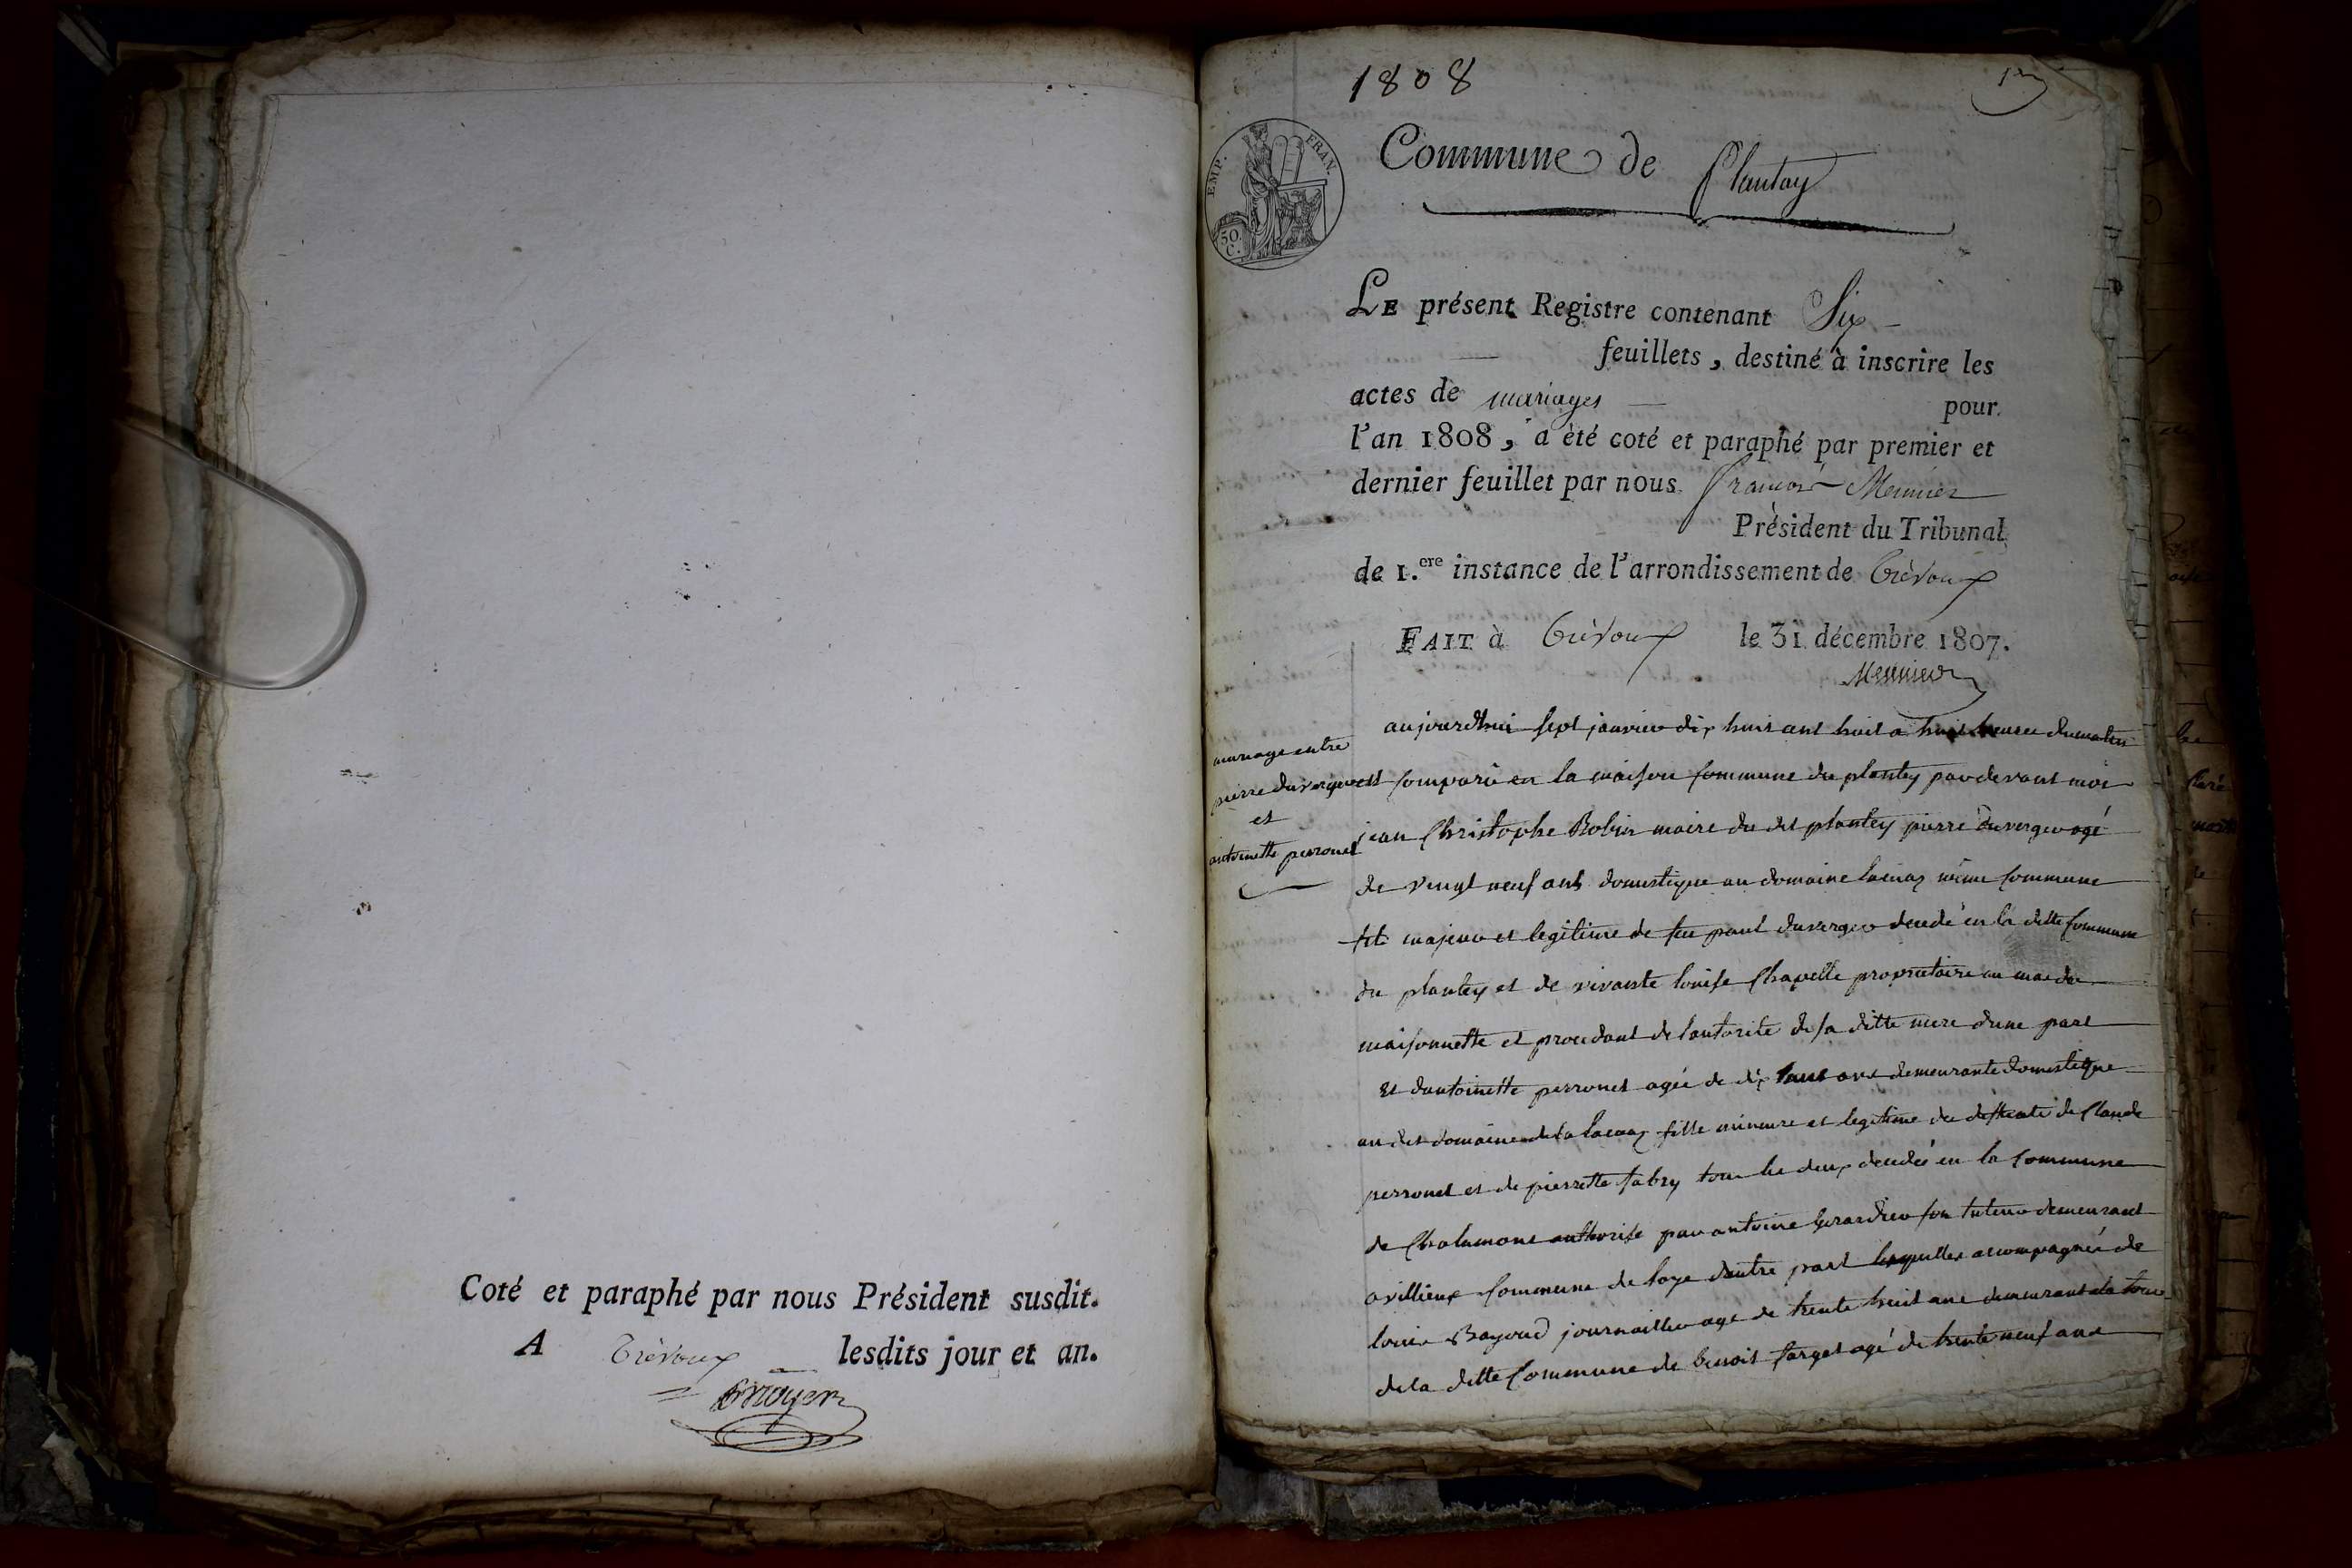 Coté et paraphé par nous Président susdit.
A Trévoux lesdits jour et an.
1808
1er
EMP. FRAN.
50 C.
Commune de Plantay
LE présent Registre contenant Six
feuillets, destiné à inscrire les
actes de mariages pour
l'an 1808, a été coté et paraphé par premier et
dernier feuillet par nous François Meunier
Président du Tribunal
de 1.ere instance de l'arrondissement de Trévoux
FAIT à Trévoux le 31 décembre 1807.
Meunier
mariage entre
pierre duverger
et
antoinette perronet
aujourdhui sept janvier dix huit ant huit a huit heures dumatin
est comparu en la maison commune du plantey pardevant moi
jean Christophe Robin maire du dit plantey pierre duverger agé
de vingt neuf ans domestique au domaine même commune
fils majeur et legitime de feu paul duverger decedé en la ditte commune
du plantey et de vivante louise Chapelle proprietaire au mas du
maisonnette et procedant de lautorité de sa ditte mere dune part
et dantoinette perronet agée de dix ans demeurante domestique
au dit domaine de la fille mineure et legitime de de Claude
perronet et de pierrette fabry tous les deux decedés en la commune
de Chalamont authorisé par antoine son tuteur demeurant
a villieux commune de loye dautre part lesquelles accompagnés de
louis journaillier agé de trente huit ans demeurant
de la ditte Commune de benoit farget agé de trente neuf ans